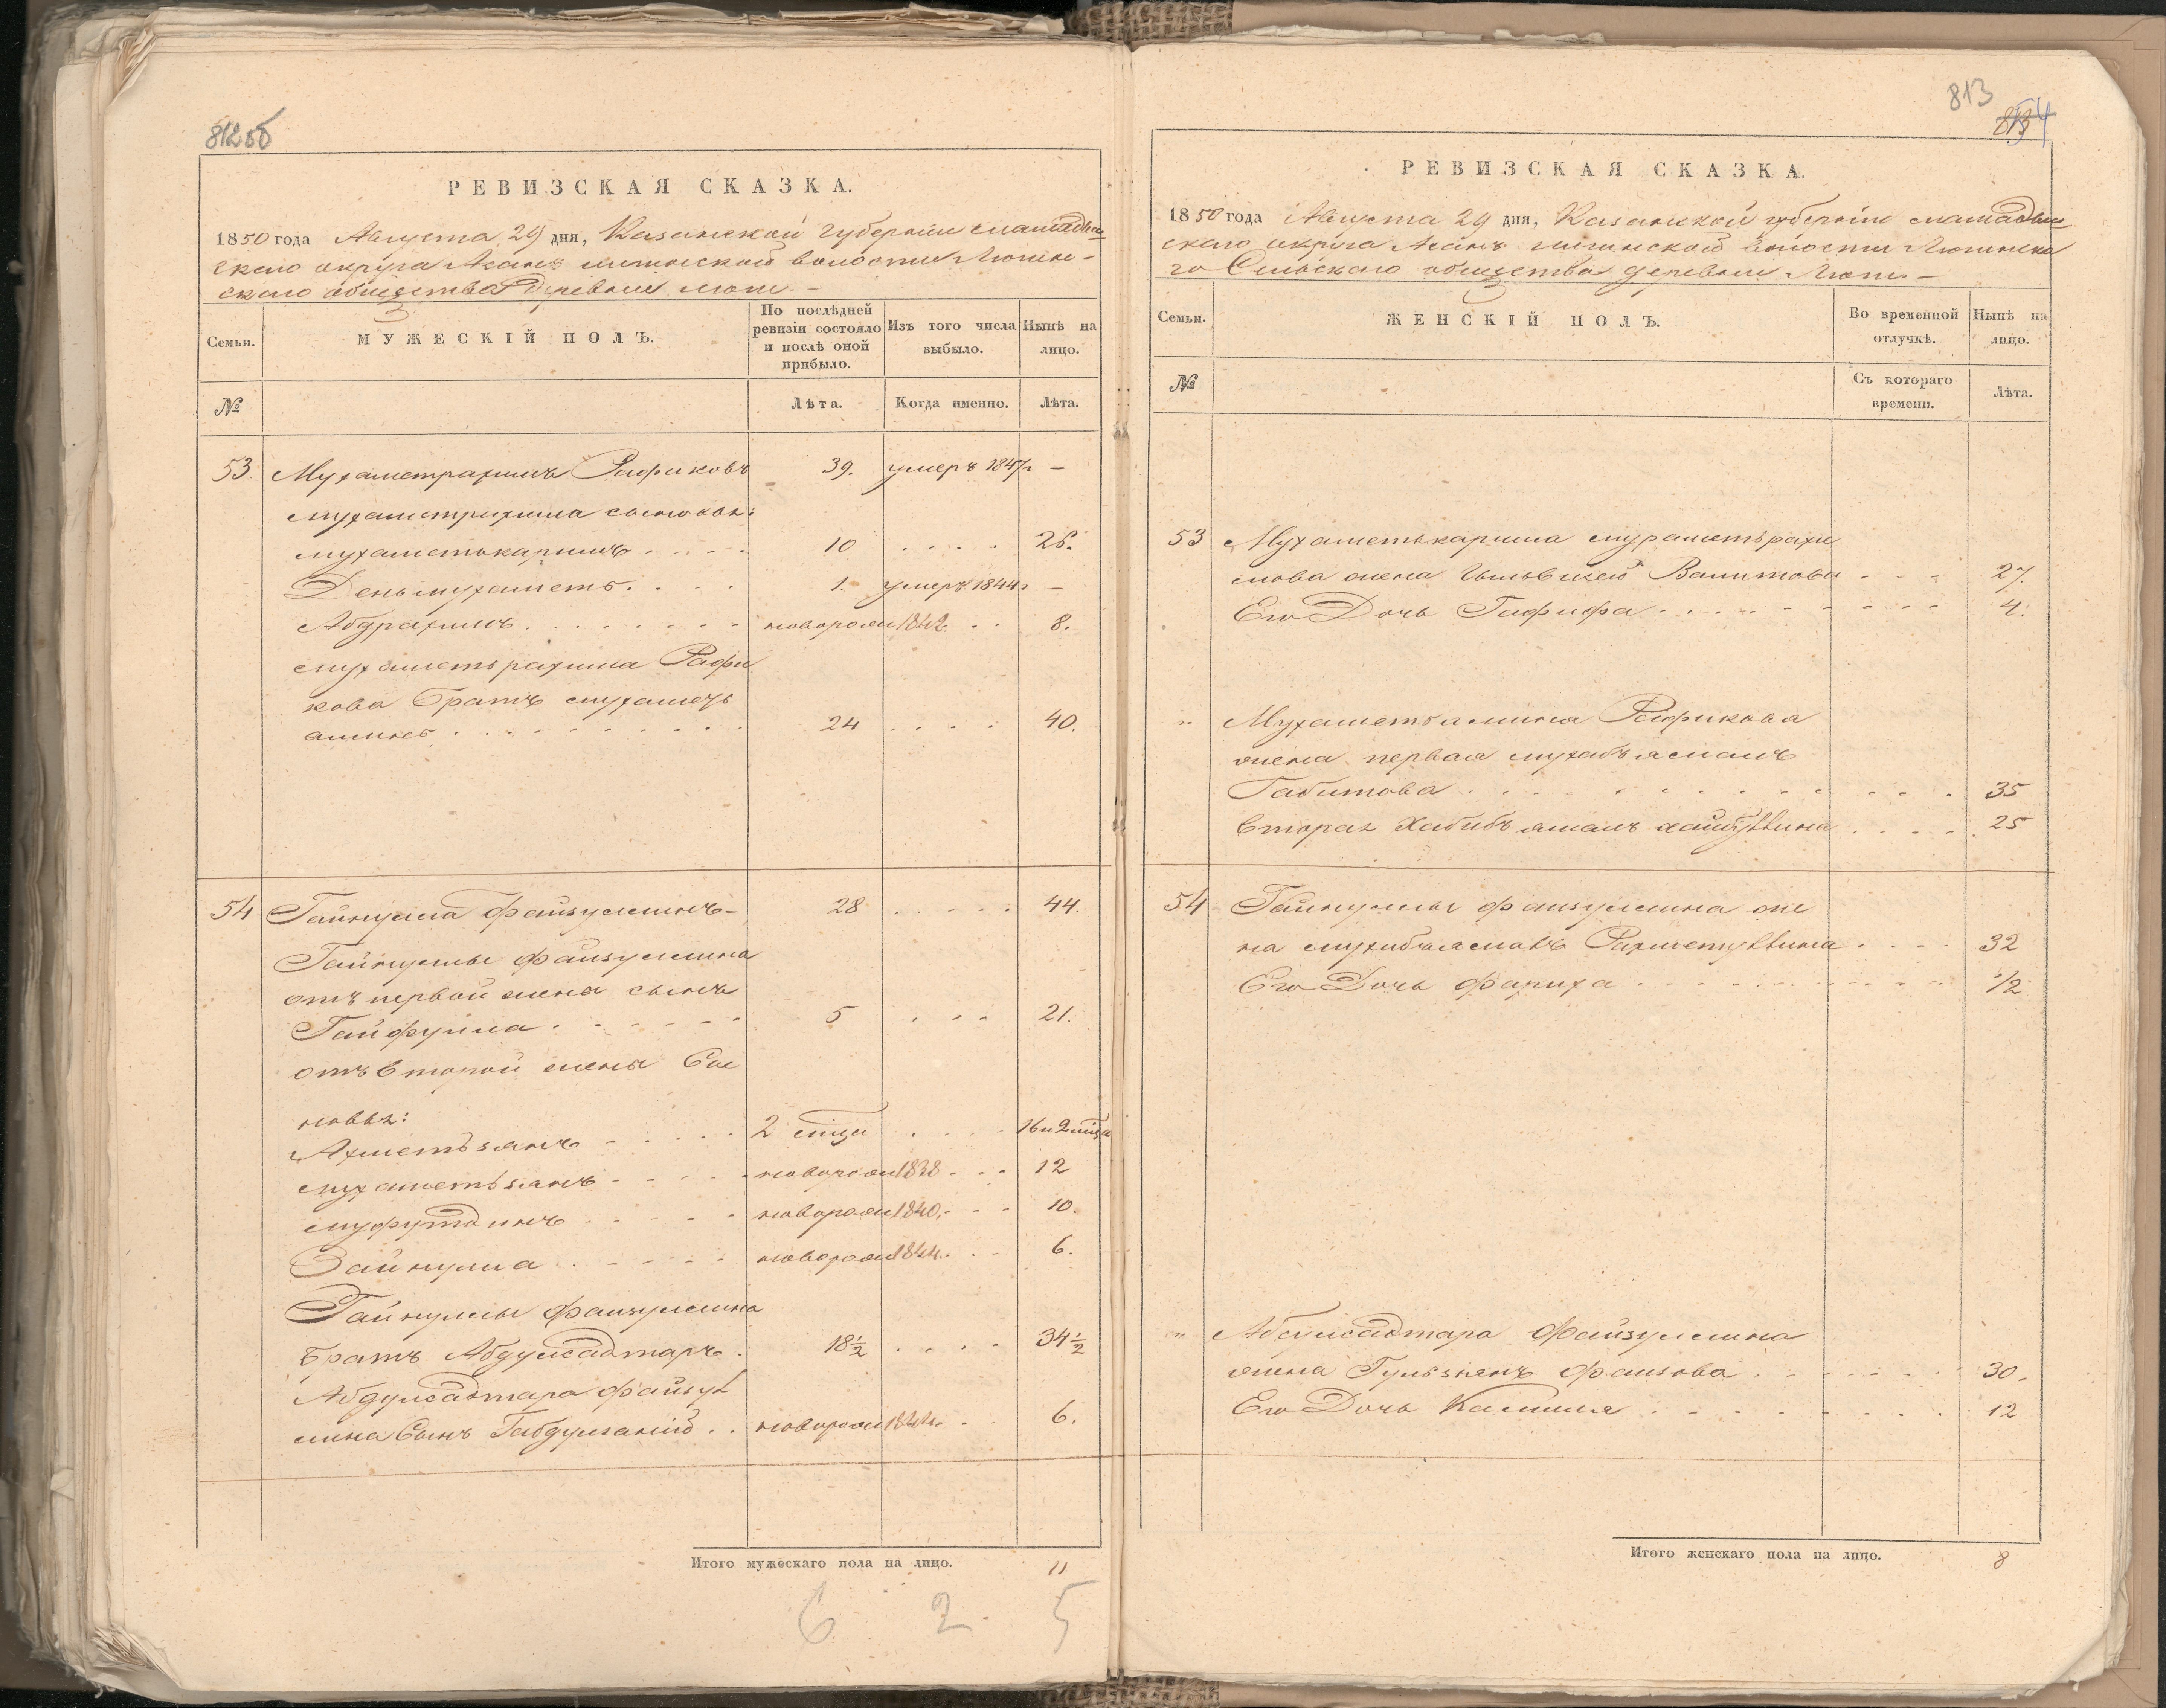 812об
РЕВИЗСКАЯ СКАЗКА.
1850 года Августа 29 дня, Казанской Губернии Мамадыш
скаго округа Асанъ волости
скаго общества Деревни
Семьи.
МУЖЕСКІЙ ПОЛЪ.
По послѣдней ревизіи состояло и послѣ оной прибыло.
Изъ того числа выбыло.
Нынѣ на лицо.
№
Лѣта.
Когда именно.
Лѣта.
53. Мухаметрахимъ Рафиковъ 39. умеръ 1847 г –
Мухаметрахима сыновья:
Мухаметькаримъ . . . . 10 . . . . 26.
Деньмухаметь . . . . 1. умеръ 1844 г –
Абдрахимъ . . . . . . . новорож 1842 . . 8.
Мухаметьрахима Рафи
кова Братъ Мухаметь
аминь . . . . . . . . . 24 . . . . 40.
54 Гайнулла Файзуллинъ – 28 . . . . . 44.
Гайнуллы Файзуллина
отъ первой жены сынъ
Гайфулла . . . . . . 5 . . . 21.
отъ второй жены Сы
новья:
Ахметьзянъ . . . . . 2 мѣсца . . . . 16 и 2 мѣсца
Мухаметьзянъ . . . . . новорож 1838 . . . 12
. . . . . новорож 1840. . . . 10.
Зайнулла . . . . . новорож 1844. . . . 6.
Гайнуллы Файзуллина
Братъ Абдулсадтаръ . 18½ . . . . 34½
Абдулсадтара Файзул
лина Сынъ Габдулганій . . новорож 1844. . . 6.
Итого мужескаго пола на лицо. 11
6 2 5
813
РЕВИЗСКАЯ СКАЗКА.
1850 года Августа 29 дня, Казанской губерніи Мамадыш
скаго округа Асанъ волости
го Сельскаго общества деревни
Семьи.
ЖЕНСКІЙ ПОЛЪ.
Во временной отлучкѣ.
Нынѣ на лицо.
№
Съ котораго времени.
Лѣта.
53 Мухаметькарима Мухаметьрахи
мова жена Валитова . . . 27.
Его Дочь Гафифа . . . . . . . . . 4.
" Мухаметьамина Рафикова
жена первая
Габитова . . . . . . . . . . . 35
вторая Хабибъямалъ . . . . . 25
54 Гайнуллы Файзуллина же
на Рахметуллина . . . . 32
Его Дочь Фариха . . . . . . . . . . . ½
" Абдулсадтара Файзуллина
жена Фаизова . . . . . . 30.
Его Дочь Камиля . . . . . . . . . 12
Итого женскаго пола на лицо. 8